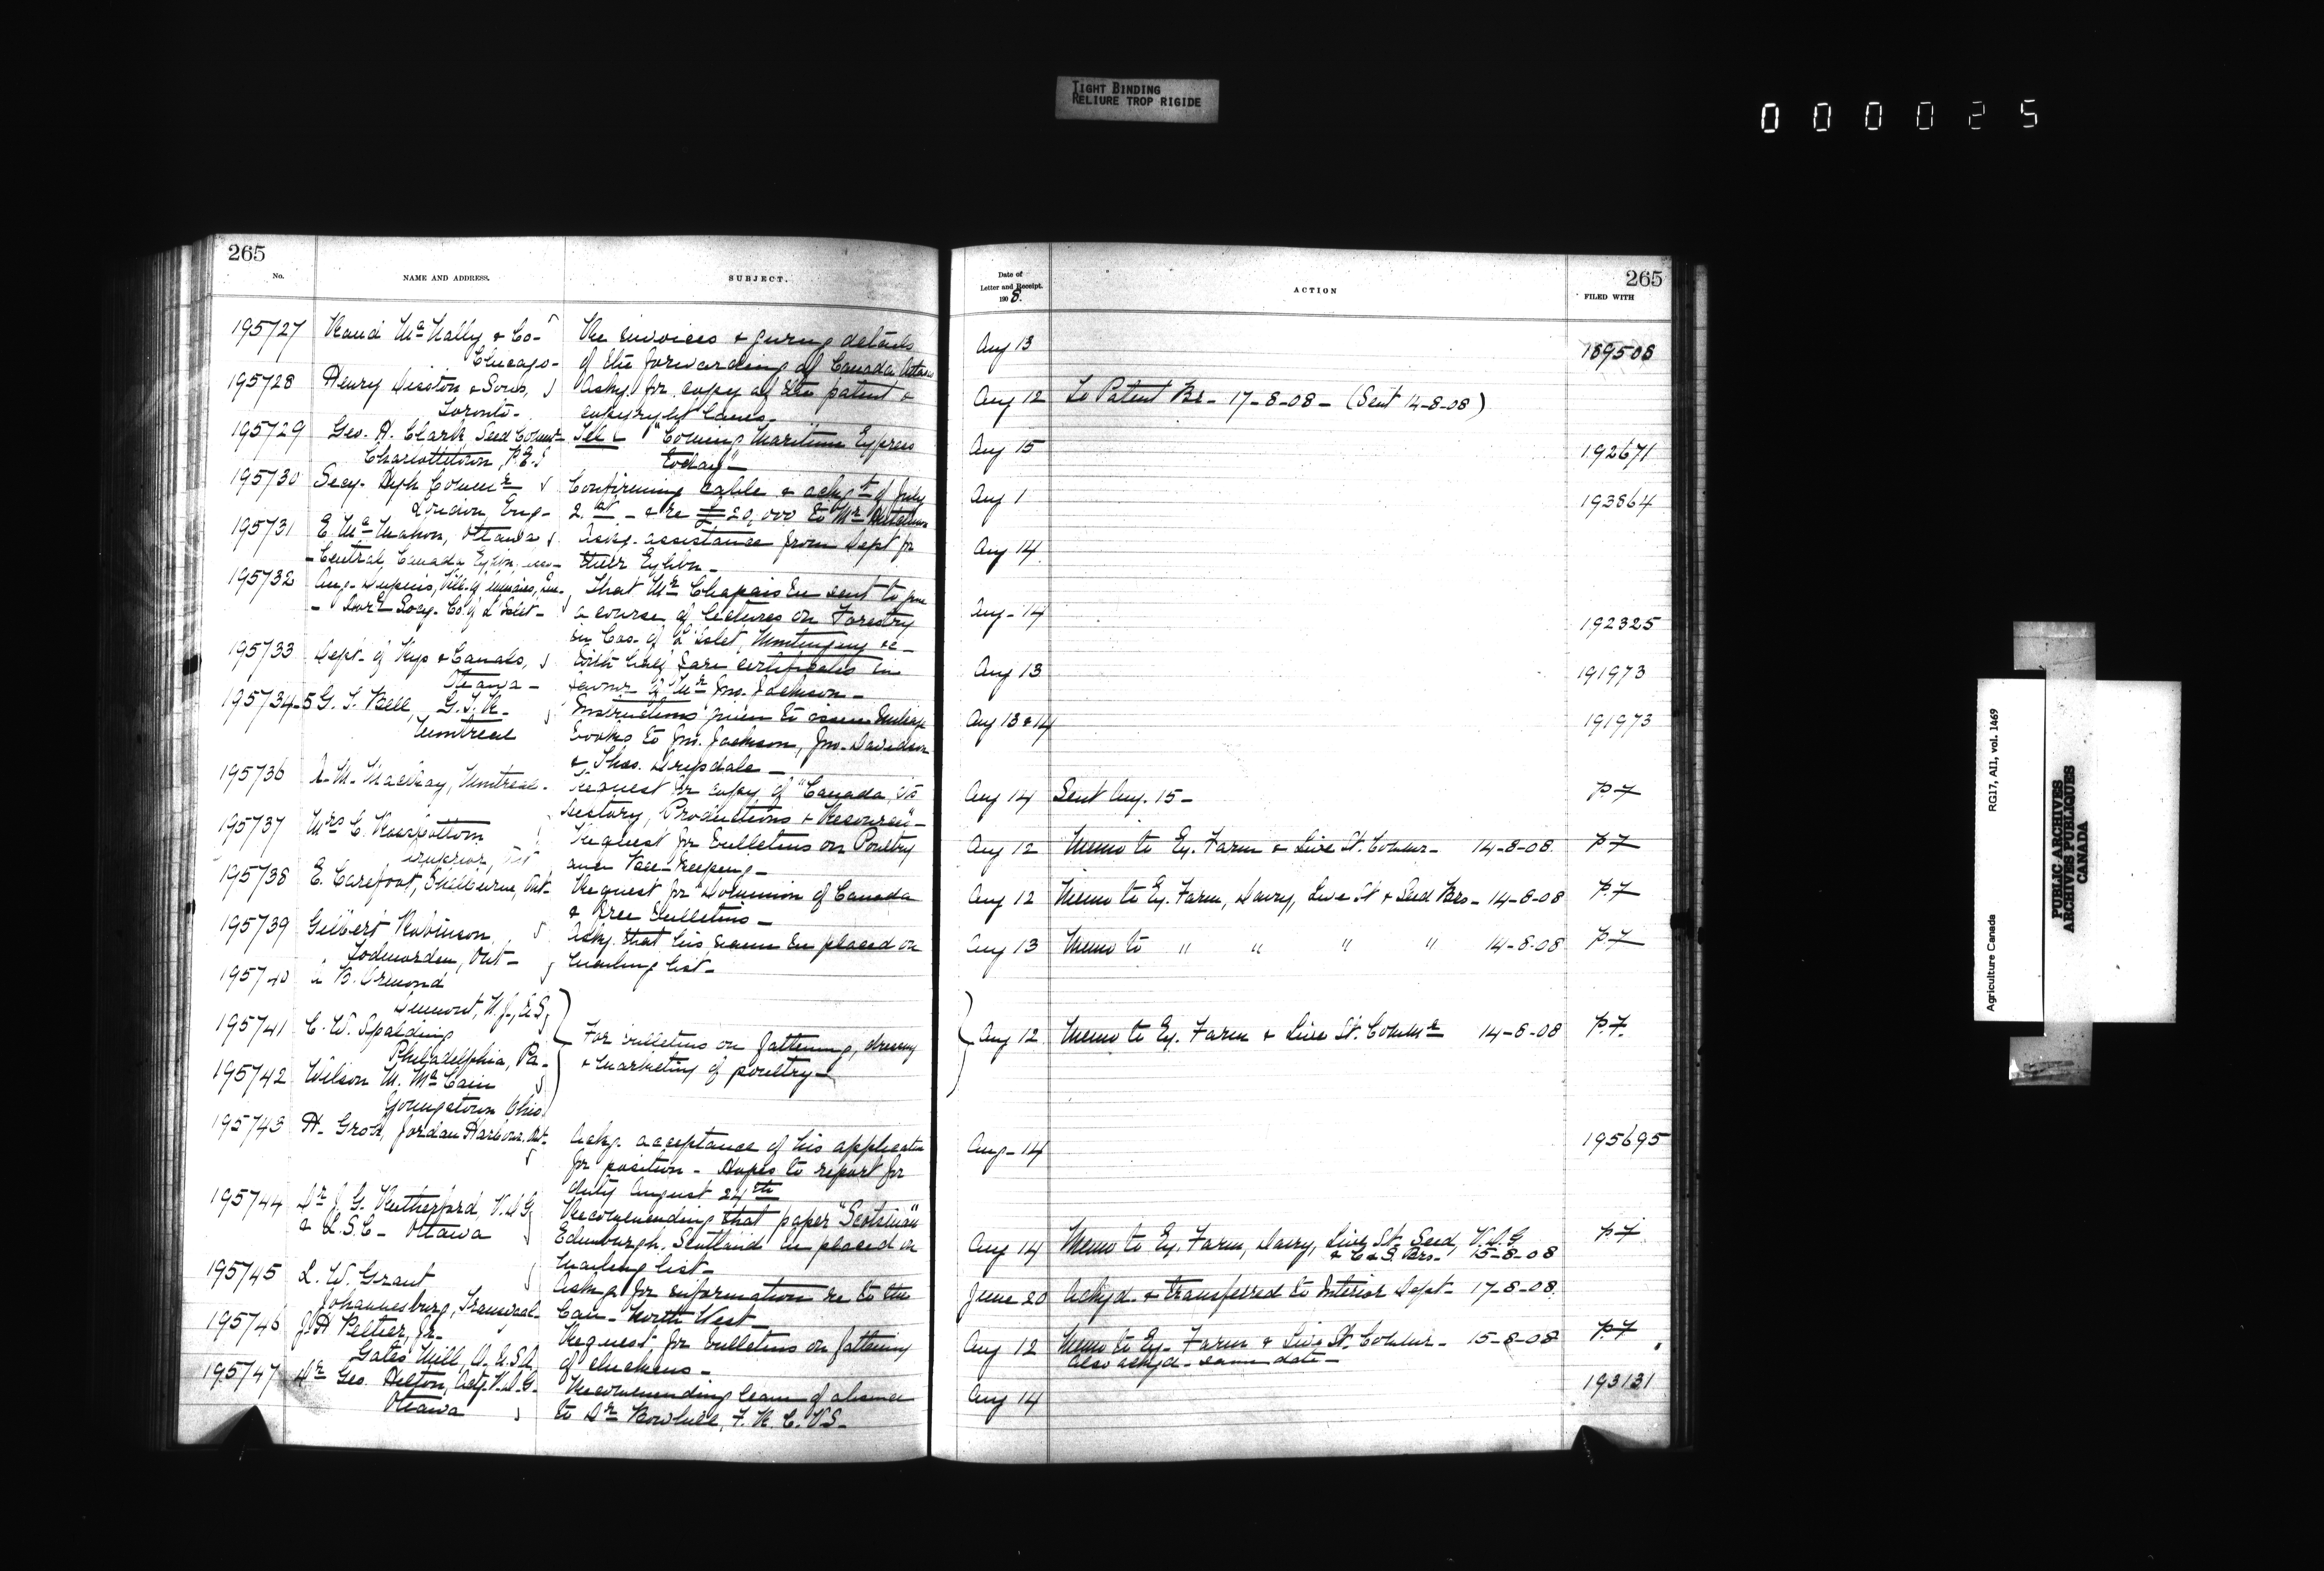 TIGHT BINDING
RELIURE TROP RIGIDE
000025
265
No.
NAME AND ADDRESS.
SUBJECT.
195727 Rand McNally & Co-
Chicago-
Re invoices & giving details
of the forwarding of Canada Atlases
195728 Henry Disston & Sons,
Toronto-
Askg. for copy of the patent &
copyright laws-
195729 Geo. H. Clark, Seed Commr-
Charlottetown, P.E.I
Tel- "Coming Maritime Express
today"-
195730 Secy. High Commr
London Eng-
Confirming cable & ackgt of July
2. - & re £20,000 to Mr
195731 E. McMahon, Ottawa
- Central Canada Exhbn.
Askg. assistance from Dept for
their Exhbn-
195732 Aug. Dupuis,
Co. of L'Islet-
That Mr Chapais be sent to give
a course of lectures on Forestry
in Cos. of L'Islet, Montmagny &c-
195733 Dept. of Rys & Canals,
Ottawa-
With half fare certificates in
favour of Mr Jno. Jackson-
195734-5 G. T. Bell, G.T.R.
Montreal
Instructions given to issue mileage
books to Jno. Jackson, Jno. Davidson
& Thos. Drysdale-
195736 MacKay, Montreal-
Request for copy of "Canada, its
History, Productions & Resources"-
195737 Mrs C.
Request for bulletins on Poultry
and Bee-Keeping-
195738 E. Carefoot, Shelburne, Ont-
Request for "Dominion of Canada
& Free Bulletins-
195739 Gilbert Robinson
Todmorden, Ont-
Askg. that his name be placed on
mailing list-
195740 B. Ormond
N.J., U.S,
195741 C. W. Spalding
Philadelphia, Pa-
195742 Wilson M. McCain
Youngstown Ohio
For bulletins on fattening, dressing
& marketing of poultry-
195743 H. Groh, Jordan Harbour, Ont-
Ackg. acceptance of his application
for position- Hopes to report for
duty August 24th
195744 Dr J. G. Rutherford, V.D.G
& L.S.C- Ottawa
Recommending that paper "Scotsman"
Edinburgh, Scotland be placed on
mailing list-
195745 L. W. Grant
Johannesburg, Transvaal-
Asking for information re to the
Can- North West-
195746 J. H Peltier, Jr-
Gates Mill, O. U.S.A,
Request for bulletins on fattening
of chickens-
195747 Dr Geo. Hilton, Actg. V.D.G-
Ottawa
Recommending leave of absence
to Dr Bowhill, F.R.C.VS-
265
Date of
Letter and Receipt.
1908.
ACTION
FILED WITH
Aug 13 189508
Aug 12 To Patent Br- 17-8-08- (Sent 14-8-08)
Aug 15 192671
Aug 1 193864
Aug 14
Aug-14 192325
Aug 13 191973
Aug 13 & 14 191973
Aug 14 Sent Aug. 15- P.F
Aug 12 Memo to Ex. Farm & Live St. Commr- 14-8-08. P.F
Aug 12 Memo to Ex. Farm, Dairy, Live St & Seed Brs- 14-8-08 P.F
Aug 13 Memo to " " " " 14-8-08 P.F
Aug 12 Memo to Ex. Farm & Live St. Commr 14-8-08 P.F.
Aug-14 195695
Aug 14 Memo to Ex. Farm, Dairy, Live St, Seed, V.D.G
& C & S. Brs- 15-8-08 P.F
June 20 Ackgd. & transferred to Interior Dept- 17-8-08.
Aug 12 Memo to Ex. Farm & Live St. Commr- 15-8-08 P.F
also ackgd- same date-
Aug 14 193131
Agriculture Canada
RG17, AI1, vol. 1469
PUBLIC ARCHIVES
ARCHIVES PUBLIQUES
CANADA